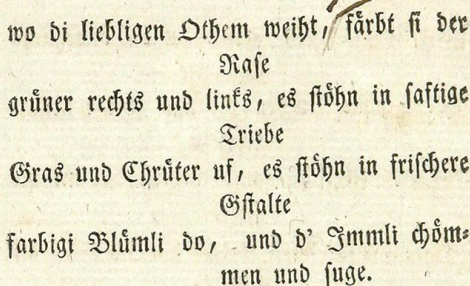 wo di liebligen Othem weiht, färbt si der
Rase
grüner rechts und links, es stöhn in saftige
Triebe
Gras und Chrüter uf, es stöhn in frischere
Gstalte
farbigi Blümli do, und d' Immli chöm=
men und suge.